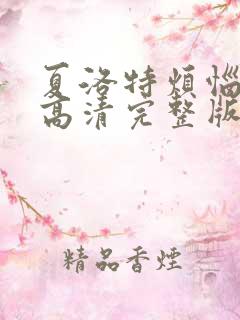 夏洛特烦恼
高清完整版
精品香煙